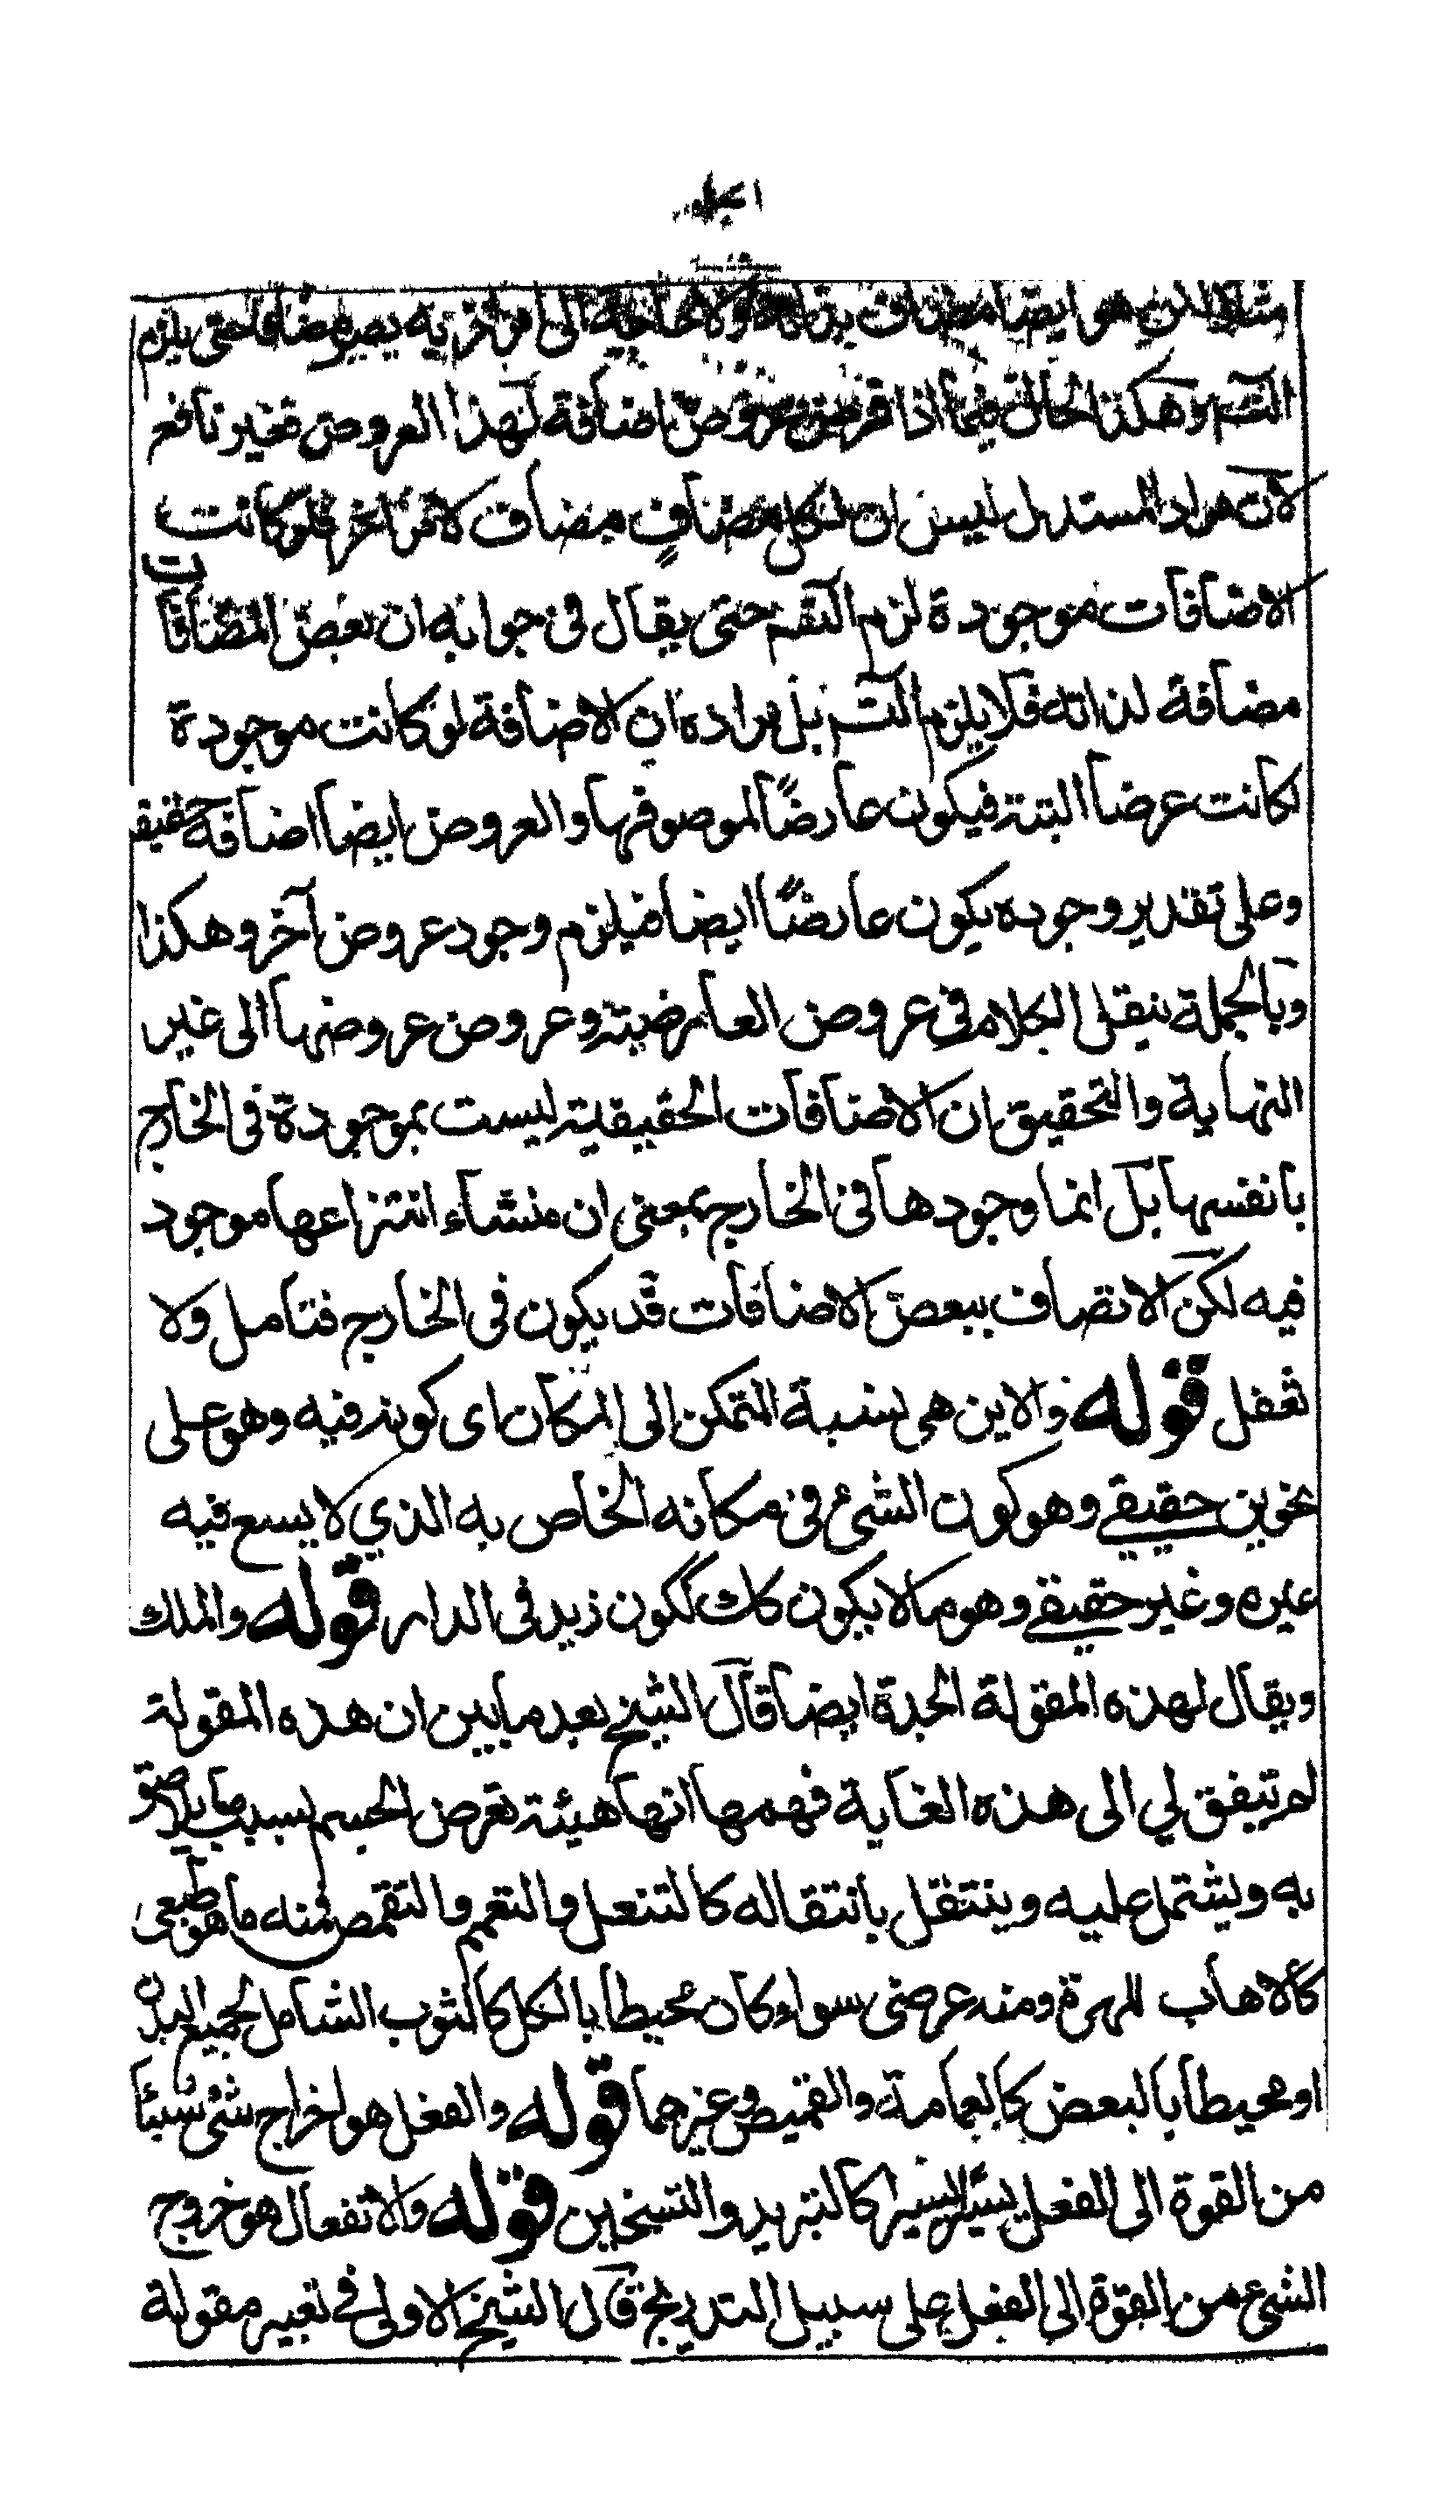 هو ايضا مضاف بذاته ولا حاجة الى امر اخر به يصير مضافا حتى يلزم
التسم وهكذا الحال فيما اذا فرض عروض اضافة لهذا العروض فغير نافع
لان مراد المستدل ليس ان لكل مضافٍ مضاف لامر اخر فلو كانت
الاضافات موجودة لزم التسم حتى يقال فى جوابه ان بعض المضافات
مضافة لذاته فلا يلزم التسم بل مراده ان الاضافة لو كانت موجودة
لكانت عرضا البتة فيكون عارضًا لموصوفها والعروض ايضا اضافة حقيقة
وعلى تقدير وجوده يكون عارضًا ايضا فيلزم وجود عروض آخر وهكذا
وبالجملة ننقل الكلام فى عروض العارضية وعروض عروضها الى غير
النهاية والتحقيق ان الاضافات الحقيقية ليست بموجودة فى الخارج
بانفسها بل انما وجودها فى الخارج بمعنى ان منشاء انتزاعها موجود
فيه لكن الاتصاف ببعض الاضافات قد يكون فى الخارج فتامل ولا
تغفل قوله والاين هى نسبة المتمكن الى المكان اى كونه فيه وهو على
نحوين حقيقے وهو كون الشئ فى مكانه الخاص به الذي لا يسع فيه
غيره وغير حقيقے وهو مما لا يكون كك ككون زيد فى الدار قوله والملك
ويقال لهذه المقولة الجدة ايضا قال الشيخ بعد ما بين ان هذه المقولة
لم تتفق لي الى هذه الغاية فهمها انها هيئة تعرض الجسم بسبب ما يلاصق
به ويشتمل عليه وينتقل بانتقاله كالتنعل والتعمم والتقمص فمنه ما هو طبعى
كالاهاب للهرة ومنه عرضى سواء كان محيطا بالكل كالثوب الشامل لجميع البدن
او محيطا بالبعض كالعمامة والقميص وغيرهما قوله والفعل هو اخراج شئ شيئا
من القوة الى الفعل يسيرا يسيرا كالتبريد والتسخين قوله والانفعال هو خروج
الشئ من القوة الى الفعل على سبيل التدريج قال الشيخ الاولى فے تعبير مقولة